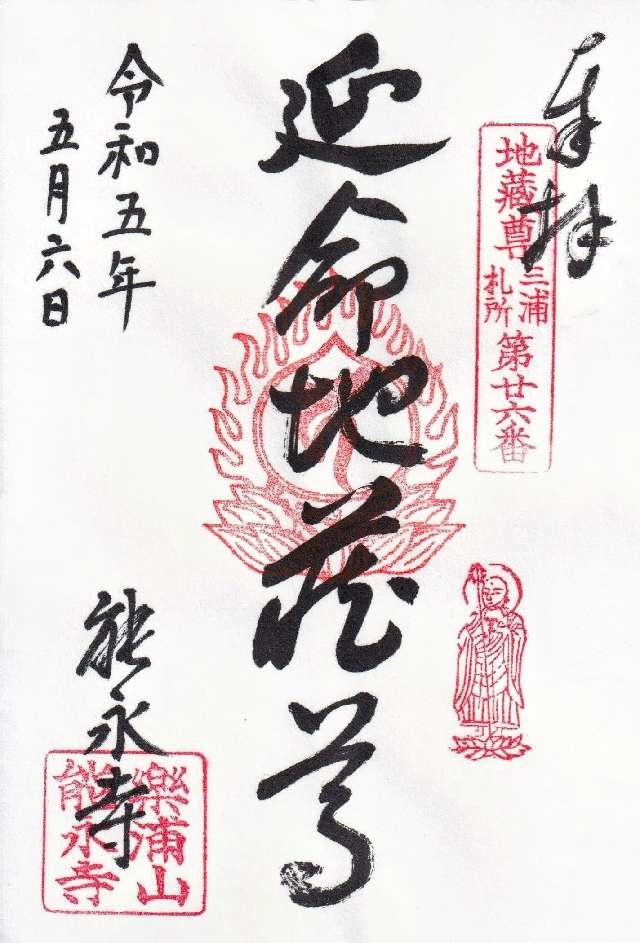 奉拝
地蔵尊三浦札所第廿六番
延命地蔵尊
令和五年
五月六日
能永寺
樂浦山
能永寺